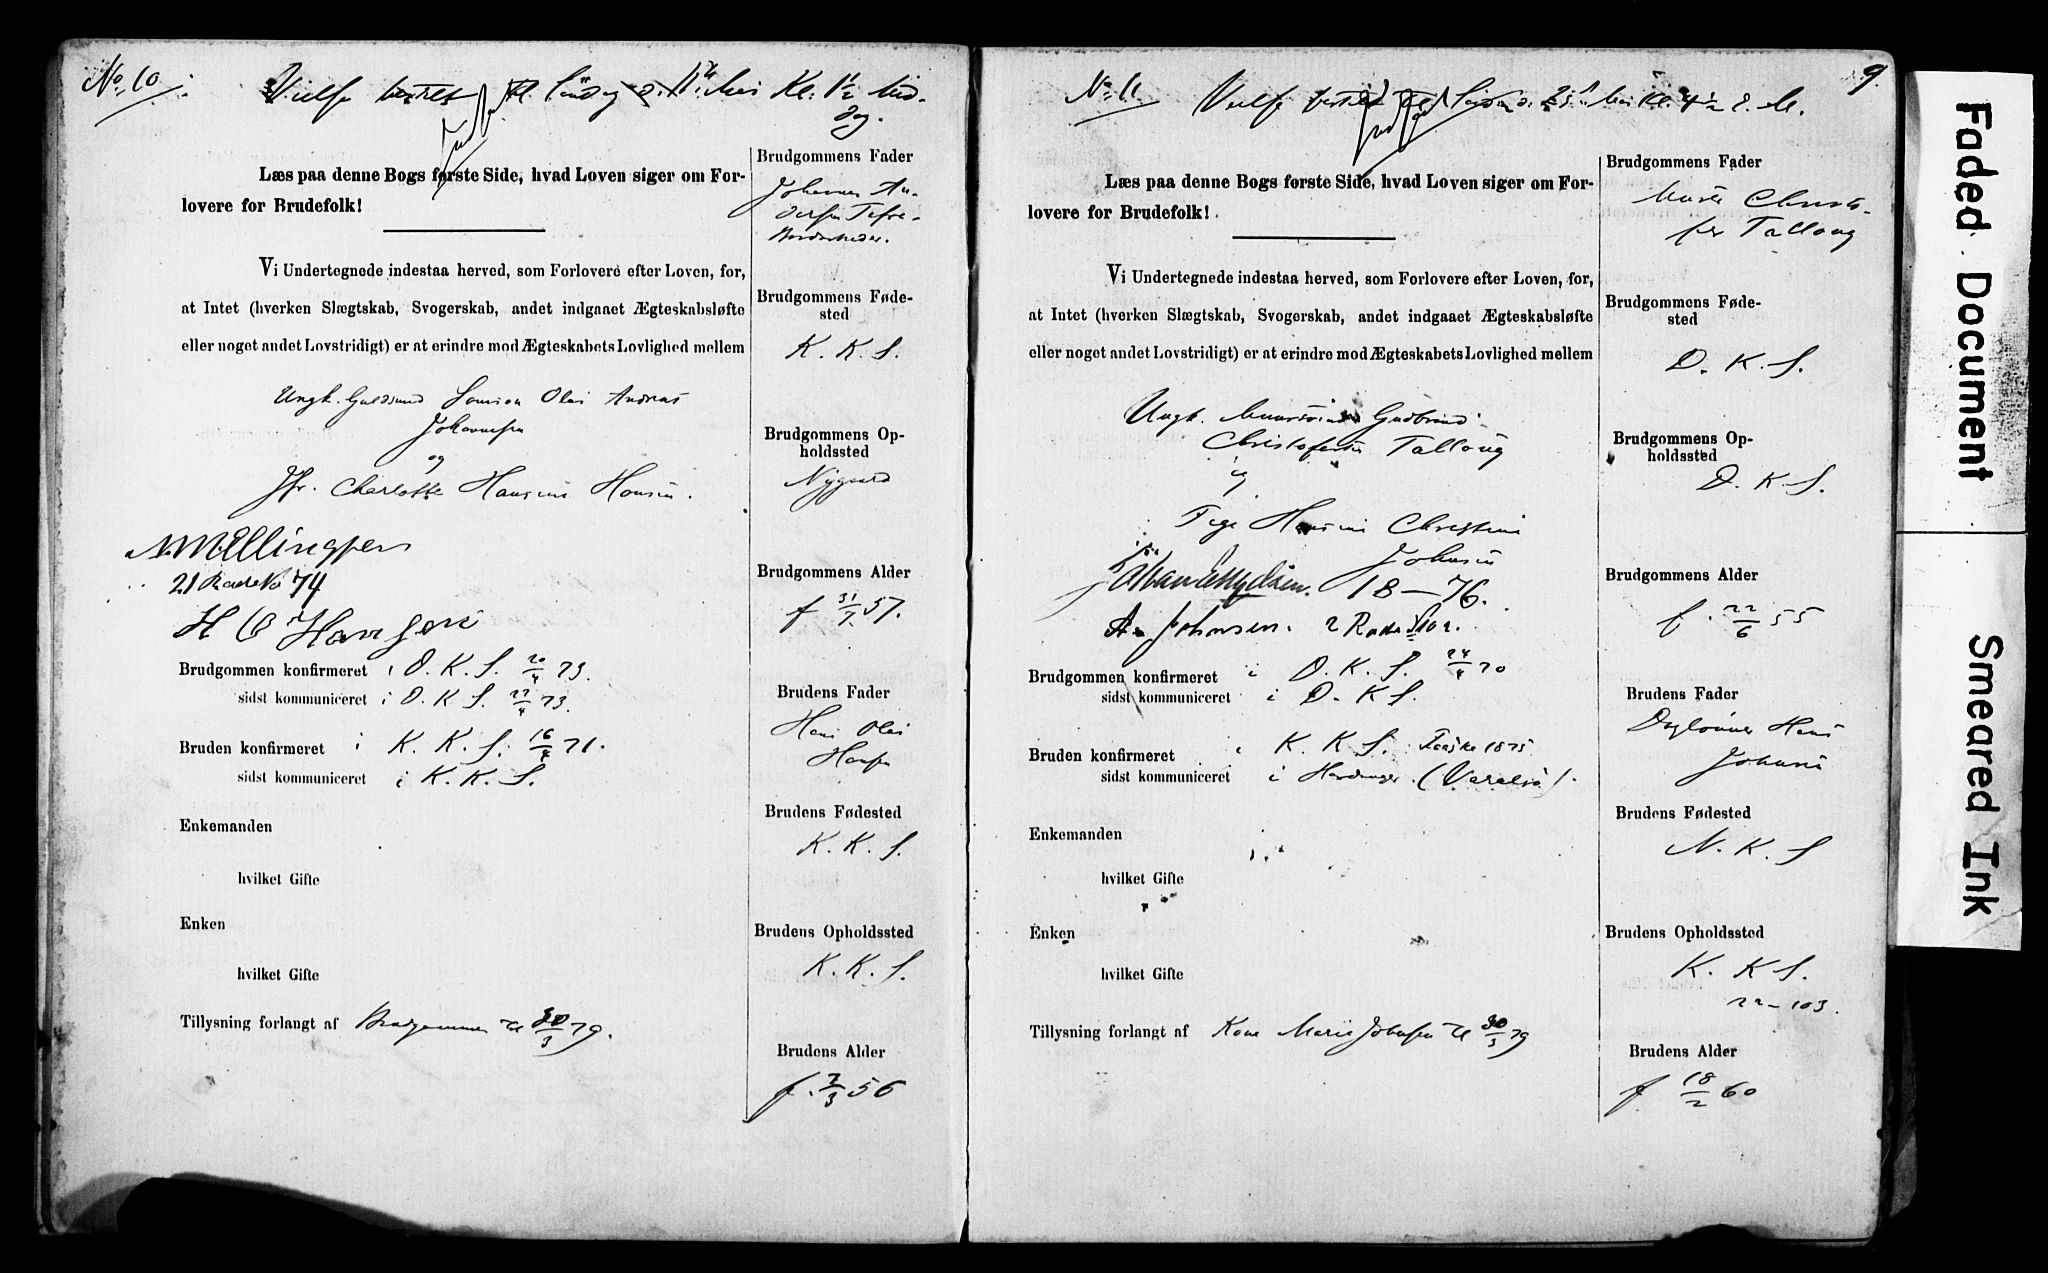 No. 10
Vielse bestilt til Søndag d. 11te Mai Kl. 1½ Mid-
dag.
Læs paa denne Bogs første Side, hvad Loven siger om For-
lovere for Brudefolk!
Vi Undertegnede indestaa herved, som Forlovere efter Loven, for,
at Intet (hverken Slægtskab, Svogerskab, andet indgaaet Ægteskabsløfte
eller noget andet Lovstridigt) er at erindre mod Ægteskabets Lovlighed mellem
Ungk. Guldsmed Olai Andreas
Johannesen
og
Jfr. Charlotte Hansine Hansen.
21 Rode No 74
H O Hansen
Brudgommen konfirmeret i D. K. S. 20/4 73.
sidst kommuniceret i D. K. S. 27/4 73.
Bruden konfirmeret i K. K. S. 16/4 71.
sidst kommuniceret i K. K. S.
Enkemanden
hvilket Gifte
Enken
hvilket Gifte
Tillysning forlangt af Brudgommen til 30/3 79.
Brudgommens Fader
Johannes An-
dersen
Brudgommens Føde-
sted
K. K. S.
Brudgommens Op-
holdssted
Nygaard
Brudgommens Alder
f 31/7 57.
Brudens Fader
Hans Olai
Hansen
Brudens Fødested
K. K. S.
Brudens Opholdssted
K. K. S.
Brudens Alder
f. 7/3 56
9.
No. 11
Vielse bestilt til Søndag d. 25 Mai Kl. 4½ E. M.
Læs paa denne Bogs første Side, hvad Loven siger om For-
lovere for Brudefolk!
Vi Undertegnede indestaa herved, som Forlovere efter Loven, for,
at Intet (hverken Slægtskab, Svogerskab, andet indgaaet Ægteskabsløfte
eller noget andet Lovstridigt) er at erindre mod Ægteskabets Lovlighed mellem
Ungk. Muursvend Gudbrand
Christofersen Talloug
og
Pige Hansine Christine
Johnsen
18 — 76.
A. Johnsen. 2 Rode 102.
Brudgommen konfirmeret i D. K. S. 24/4 70
sidst kommuniceret i D. K. S.
Bruden konfirmeret i K. K. S. Paaske 1875
sidst kommuniceret i Hardanger (Varalsö).
Enkemanden
hvilket Gifte
Enken
hvilket Gifte
Tillysning forlangt af Kone Marie Johnsen til 30/3 79
Brudgommens Fader
Murer Christo-
fer Talloug
Brudgommens Føde-
sted
D. K. S.
Brudgommens Op-
holdssted
D. K. S.
Brudgommens Alder
f. 22/6 55
Brudens Fader
Daglønner Hans
Johnsen
Brudens Fødested
N. K. S
Brudens Opholdssted
K. K S.
22 – 103.
Brudens Alder
f 18/2 60
Faded Document
Smeared Ink